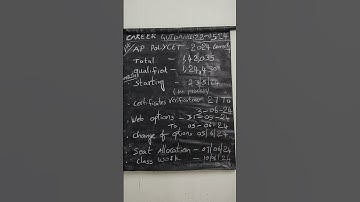 CAREER GUIDANCE 22-05-24
AP POLYCET - 2024
Total - 1,42,035
qualified - 1,24,4
Starting - 23/5/24
- Certificates Verification - 27 To
3-06-24
- Web options - 31-05-24
To, 05-06-24
- Change of options 05/6/24
- Seat Allocation - 07/06/24
- Class work - 10/06/24